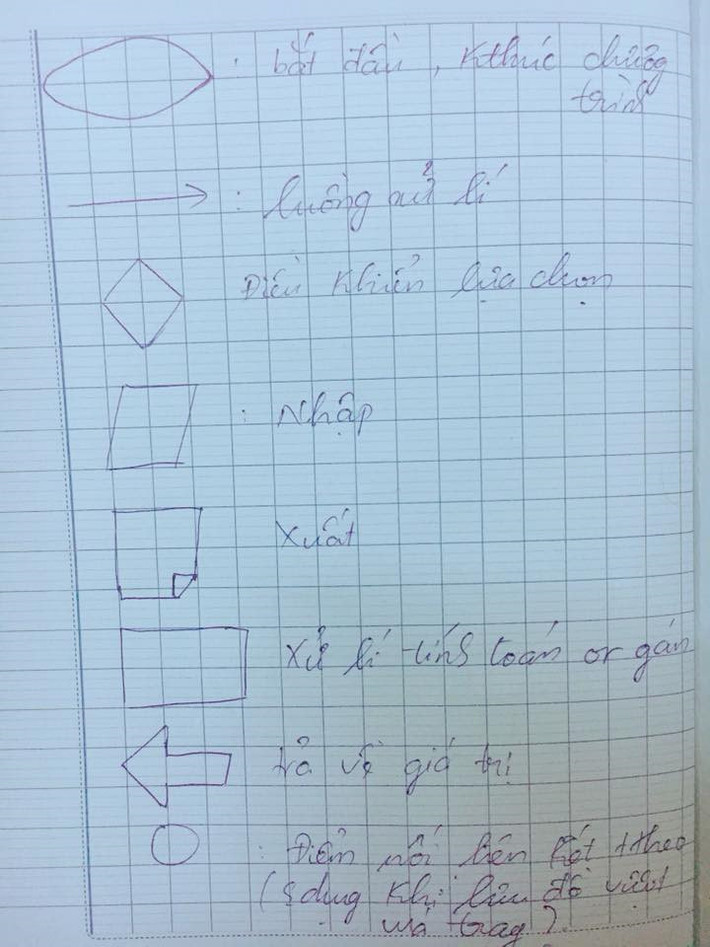 : bắt đầu, kthúc chương
trình
: luồng xử lí
Điều khiển lựa chọn
: Nhập
Xuất
Xử lí tính toán or gán
trả về giá trị
: Điểm nối liên kết ttheo
(sdụng khi lưu đồ vượt
quá trag).